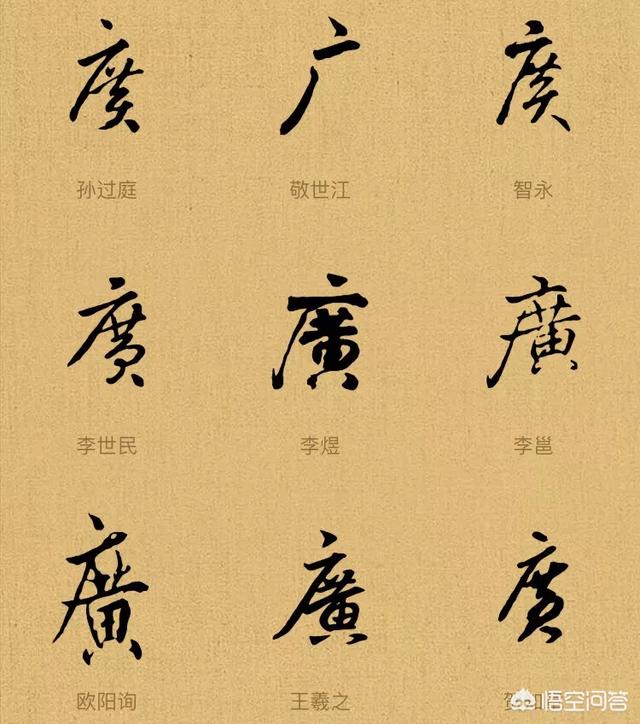 廣 广 廣
孙过庭 敬世江 智永
廣 廣 廣
李世民 李煜 李邕
廣 廣 廣
欧阳询 王羲之 贺
悟空问答